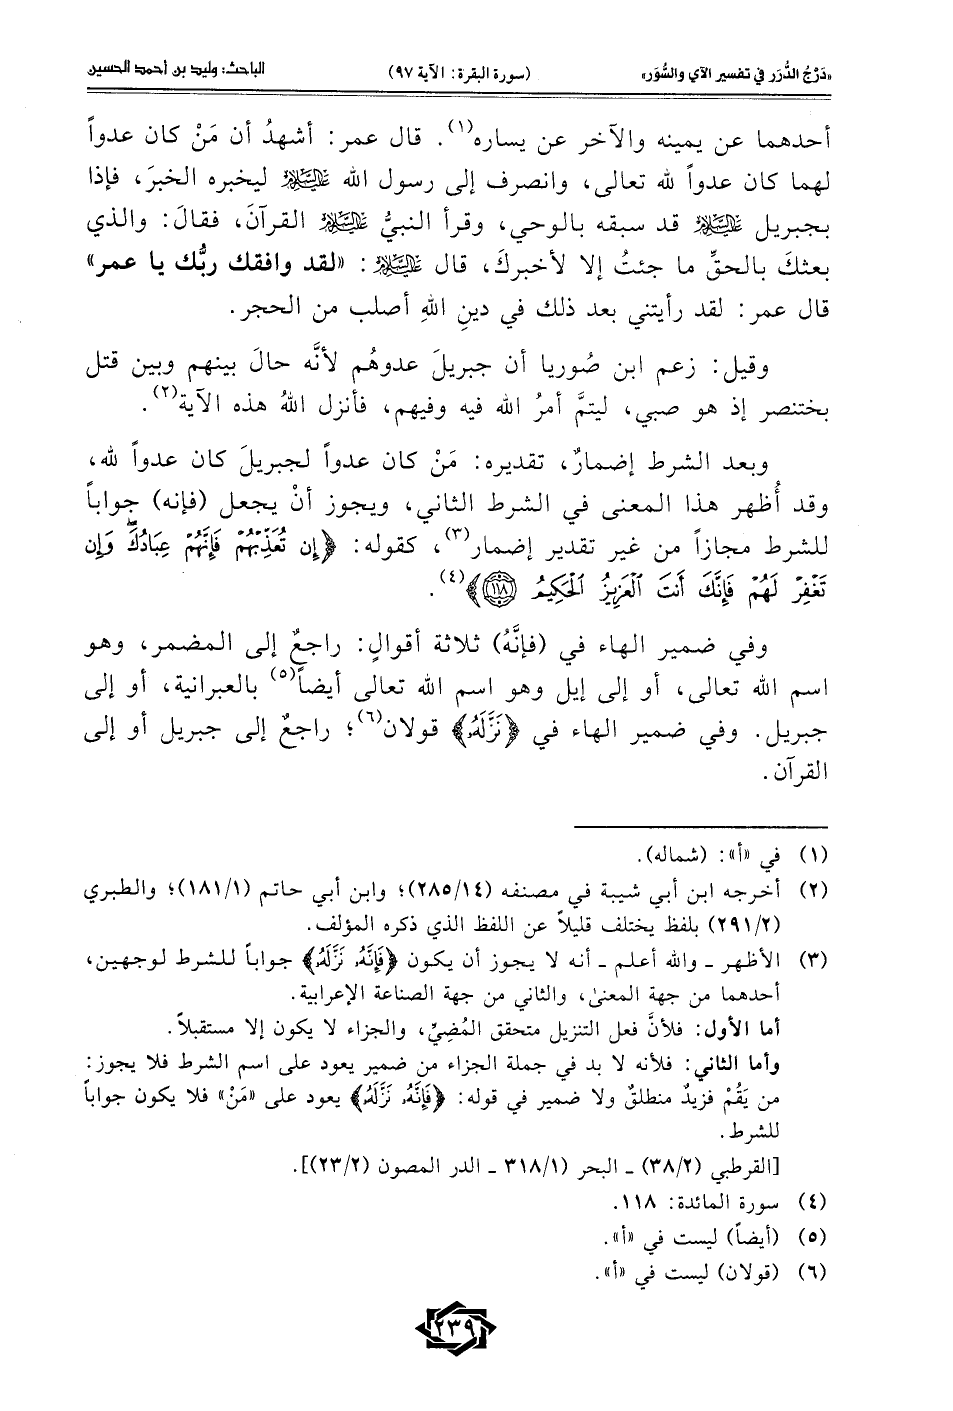 «دَرْجُ الدُّرَر في تفسير الآي والسُّوَر» (سورة البقرة: الآية ٩٧) الباحث: وليد بن أحمد الحسين
أحدهما عن يمينه والآخر عن يساره(١). قال عمر: أشهدُ أن مَنْ كان عدواً
لهما كان عدواً لله تعالى، وانصرف إلى رسول الله عليه السلام ليخبره الخبرَ، فإذا
بجبريل عليه السلام قد سبقه بالوحي، وقرأ النبيُّ عليه السلام القرآنَ، فقالَ: والذي
بعثكَ بالحقِّ ما جئتُ إلا لأخبركَ، قال عليه السلام: «لقد وافقك ربُّك يا عمر»
قال عمر: لقد رأيتني بعد ذلك في دينِ اللهِ أصلب من الحجر.
وقيل: زعم ابن صُوريا أن جبريلَ عدوهُم لأنَّه حالَ بينهم وبين قتل
بختنصر إذ هو صبي، ليتمَّ أمرُ الله فيه وفيهم، فأنزل اللهُ هذه الآية(٢).
وبعد الشرط إضمارٌ، تقديره: مَنْ كان عدواً لجبريلَ كان عدواً لله،
وقد أُظهر هذا المعنى في الشرط الثاني، ويجوز أنْ يجعل (فإنه) جواباً
للشرط مجازاً من غير تقدير إضمار(٣)، كقوله: ﴿إِن تُعَذِّبْهُمْ فَإِنَّهُمْ عِبَادُكَ ۖ وَإِن
تَغْفِرْ لَهُمْ فَإِنَّكَ أَنتَ ٱلْعَزِيزُ ٱلْحَكِيمُ ١١٨﴾(٤).
وفي ضمير الهاء في (فإنَّهُ) ثلاثة أقوالٍ: راجعٌ إلى المضمر، وهو
اسم الله تعالى، أو إلى إيل وهو اسم الله تعالى أيضاً(٥) بالعبرانية، أو إلى
جبريل. وفي ضمير الهاء في ﴿نَزَّلَهُۥ﴾ قولان(٦)؛ راجعٌ إلى جبريل أو إلى
القرآن.
(١) في «أ»: (شماله).
(٢) أخرجه ابن أبي شيبة في مصنفه (٢٨٥/١٤)؛ وابن أبي حاتم (١٨١/١)؛ والطبري
(٢٩١/٢) بلفظ يختلف قليلاً عن اللفظ الذي ذكره المؤلف.
(٣) الأظهر ـ والله أعلم ـ أنه لا يجوز أن يكون ﴿فَإِنَّهُۥ نَزَّلَهُۥ﴾ جواباً للشرط لوجهين،
أحدهما من جهة المعنىٰ، والثاني من جهة الصناعة الإعرابية.
أما الأول: فلأنَّ فعل التنزيل متحقق المُضِيِّ، والجزاء لا يكون إلا مستقبلاً.
وأما الثاني: فلأنه لا بد في جملة الجزاء من ضمير يعود على اسم الشرط فلا يجوز:
من يَقُمْ فزيدٌ منطلقٌ ولا ضمير في قوله: ﴿فَإِنَّهُۥ نَزَّلَهُۥ﴾ يعود على «مَنْ» فلا يكون جواباً
للشرط.
[القرطبي (٣٨/٢) ـ البحر (٣١٨/١ ـ الدر المصون (٢٣/٢)].
(٤) سورة المائدة: ١١٨.
(٥) (أيضاً) ليست في «أ».
(٦) (قولان) ليست في «أ».
٢٣٩